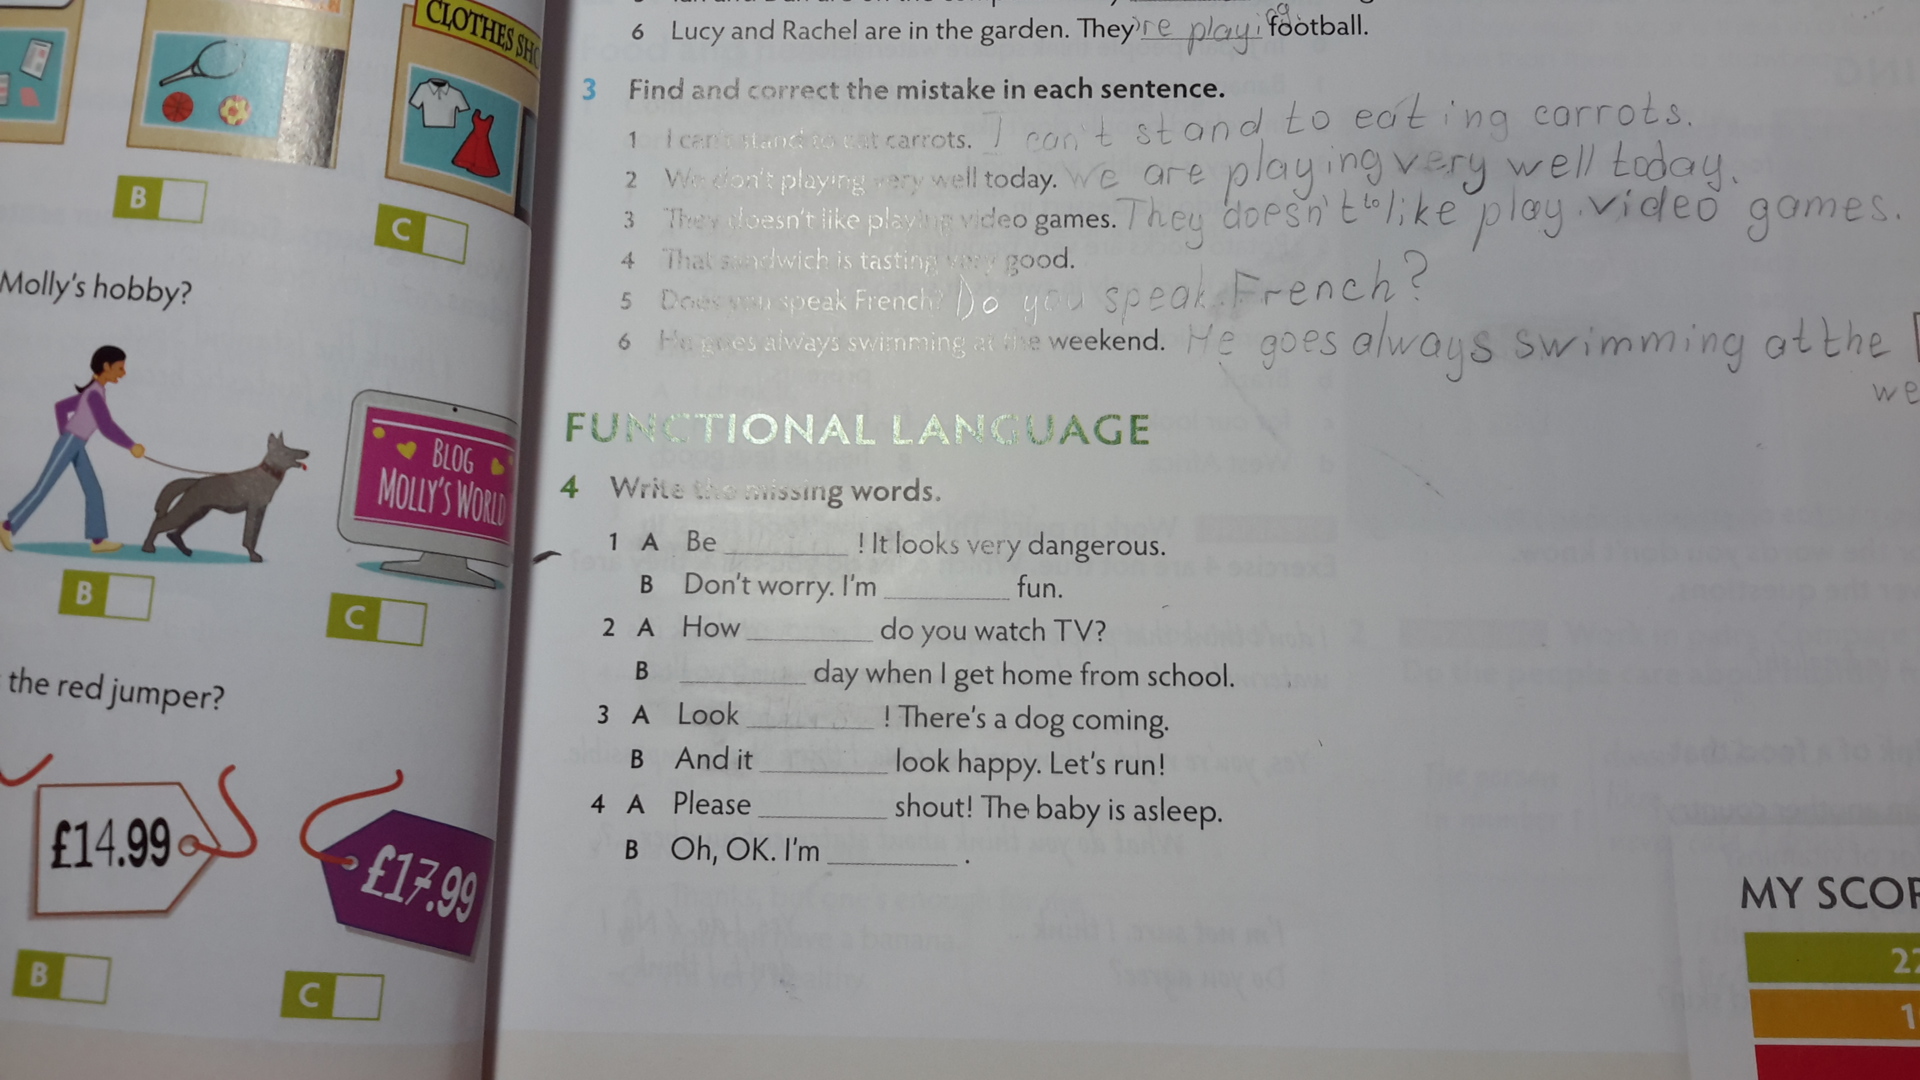 CLOTHES SHO
B
C
Molly's hobby?
BLOG
MOLLY'S WORLD
B
C
the red jumper?
£14.99
£17.99
B
C
6 Lucy and Rachel are in the garden. They're playing football.
3 Find and correct the mistake in each sentence.
1 I can't stand to eat carrots. I can't stand to eating carrots.
2 We don't playing very well today. We are playing very well today.
3 They doesn't like playing video games. They doesn't to like play video games.
4 That sandwich is tasting very good.
5 Does you speak French? Do you speak French?
6 He goes always swimming at the weekend. He goes always swimming at the
we
FUNCTIONAL LANGUAGE
4 Write the missing words.
1 A Be ________ ! It looks very dangerous.
B Don't worry. I'm ________ fun.
2 A How ________ do you watch TV?
B ________ day when I get home from school.
3 A Look ________ ! There's a dog coming.
B And it ________ look happy. Let's run!
4 A Please ________ shout! The baby is asleep.
B Oh, OK. I'm ________ .
MY SCOR
22
1